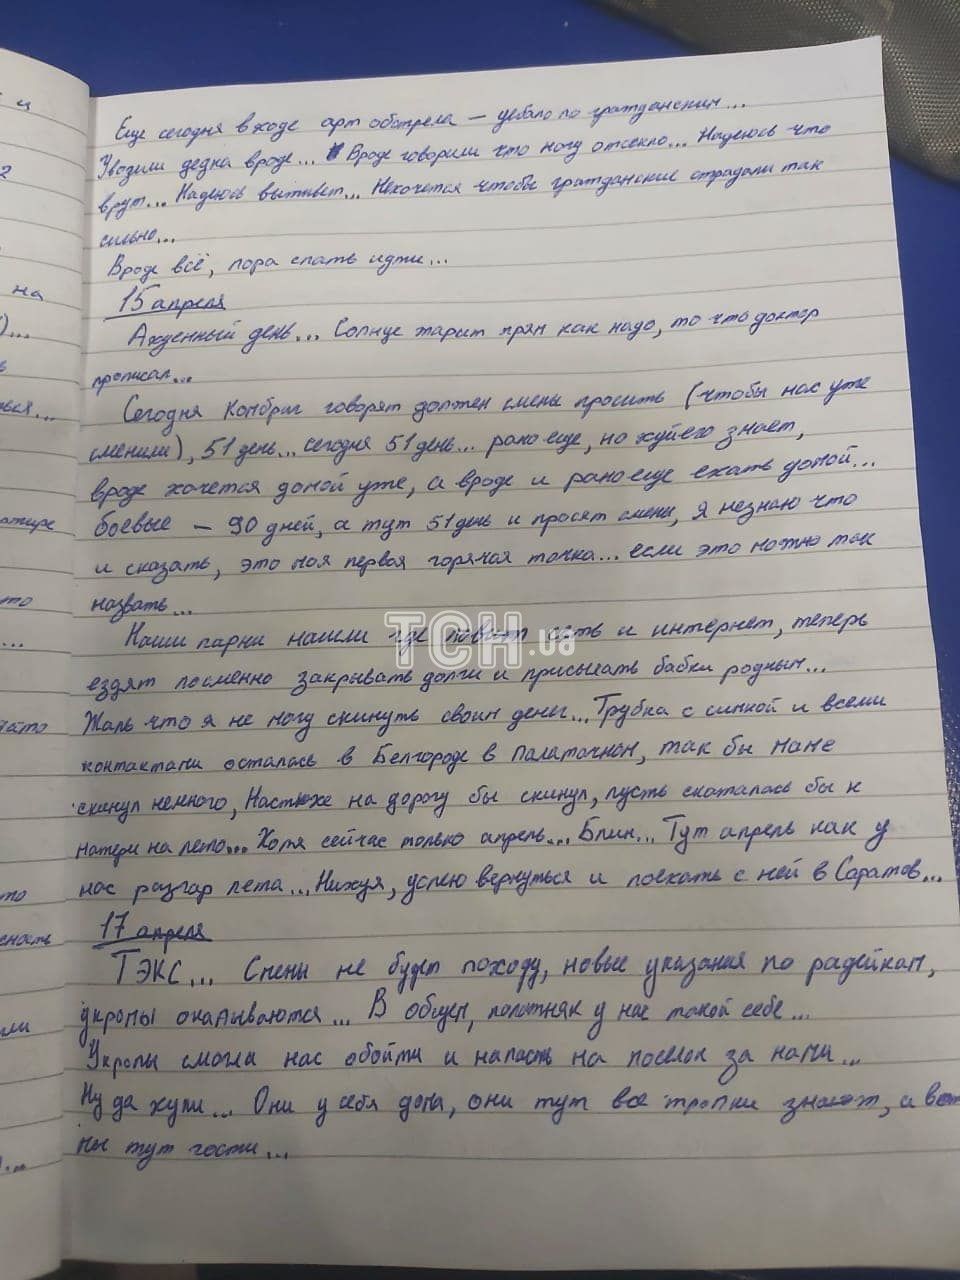 Еще сегодня в ходе арт обстрела — уебало по гражданским...
Увозили дедка вроде... Вроде говорили что ногу отсекло... Надеюсь что
врут... Надеюсь выживет... Нехочется чтобы гражданские страдали так
сильно...
Вроде всё, пора спать идти...
15 апреля
Ахуенный день... Солнце жарит прям как надо, то что доктор
прописал...
Сегодня Комбриг говорят должен смены просить (чтобы нас уже
сменили), 51 день... сегодня 51 день... рано еще, но хуй его знает,
вроде хочется домой уже, а вроде и рано еще ехать домой...
боевые — 90 дней, а тут 51 день и просят смены, я незнаю что
и сказать, это моя первая горячая точка... если это можно так
назвать...
Наши парни нашли где ловит сеть и интернет, теперь
ездят посменно закрывать долги и присылать бабки родным...
Жаль что я не могу скинуть своим денег... Трубка с симкой и всеми
контактами осталась в Белгороде в Палаточном, так бы маме
скинул немного, Настюхе на дорогу бы скинул, пусть скаталась бы к
матери на лето... Хотя сейчас только апрель... Блин... Тут апрель как у
нас разгар лета... Нихуя, успею вернуться и поехать с ней в Саратов...
17 апреля
ТЭКС... Смены не будет походу, новые указания по радейкам,
укропы окапываются... В общем, полотняк у нас такой себе...
Укропы смогли нас обойти и напасть на поселок за нами...
Ну да хули... Они у себя дома, они тут все тропки знают, а вот
мы тут гости...
и
2
на
)...
ь
то
...
ли
ТСН.ua